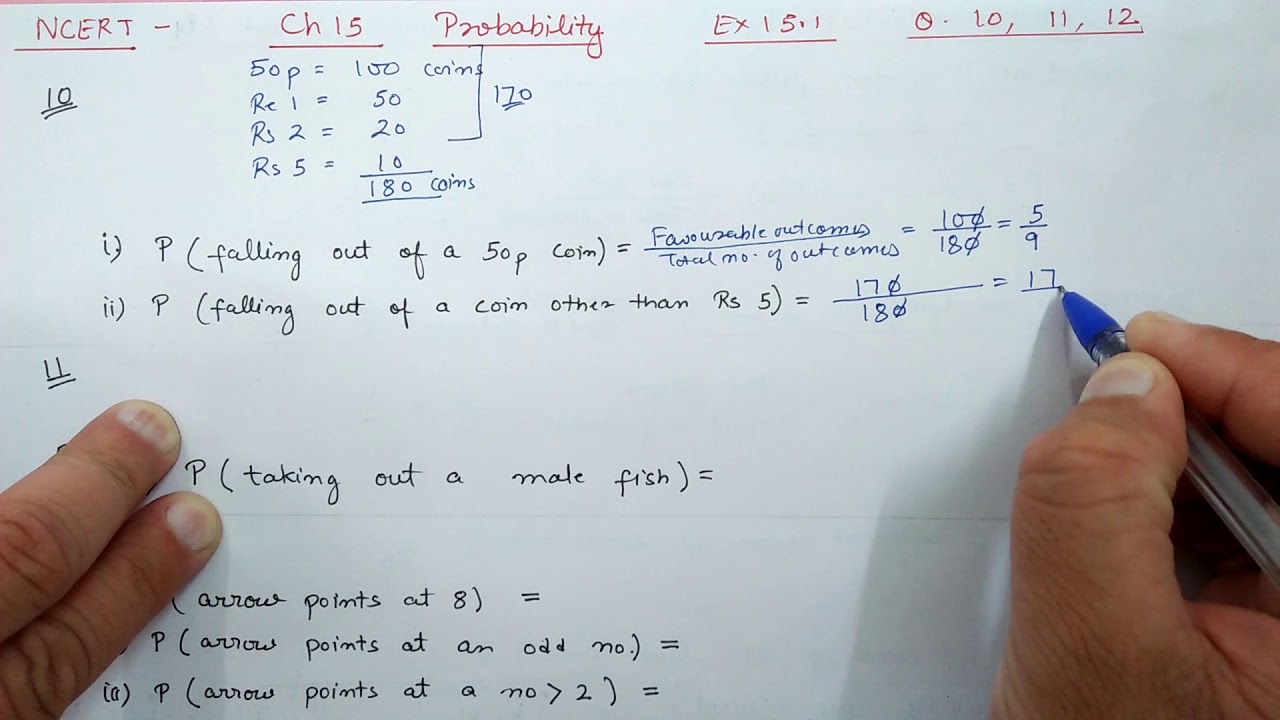 NCERT - Ch 15 Probability Ex 15.1 Q. 10, 11, 12
10
50p = 100 coins
Re 1 = 50
Rs 2 = 20
170
Rs 5 = 10
180 coins
i) P (falling out of a 50p coin) = Favourable outcomes / Total no. of outcomes = 100/180 = 5/9
ii) P (falling out of a coin other than Rs 5) = 170/180 = 17
11
P (taking out a male fish) =
(arrow points at 8) =
) P (arrow points at an odd no.) =
P (arrow points at a no > 2) =